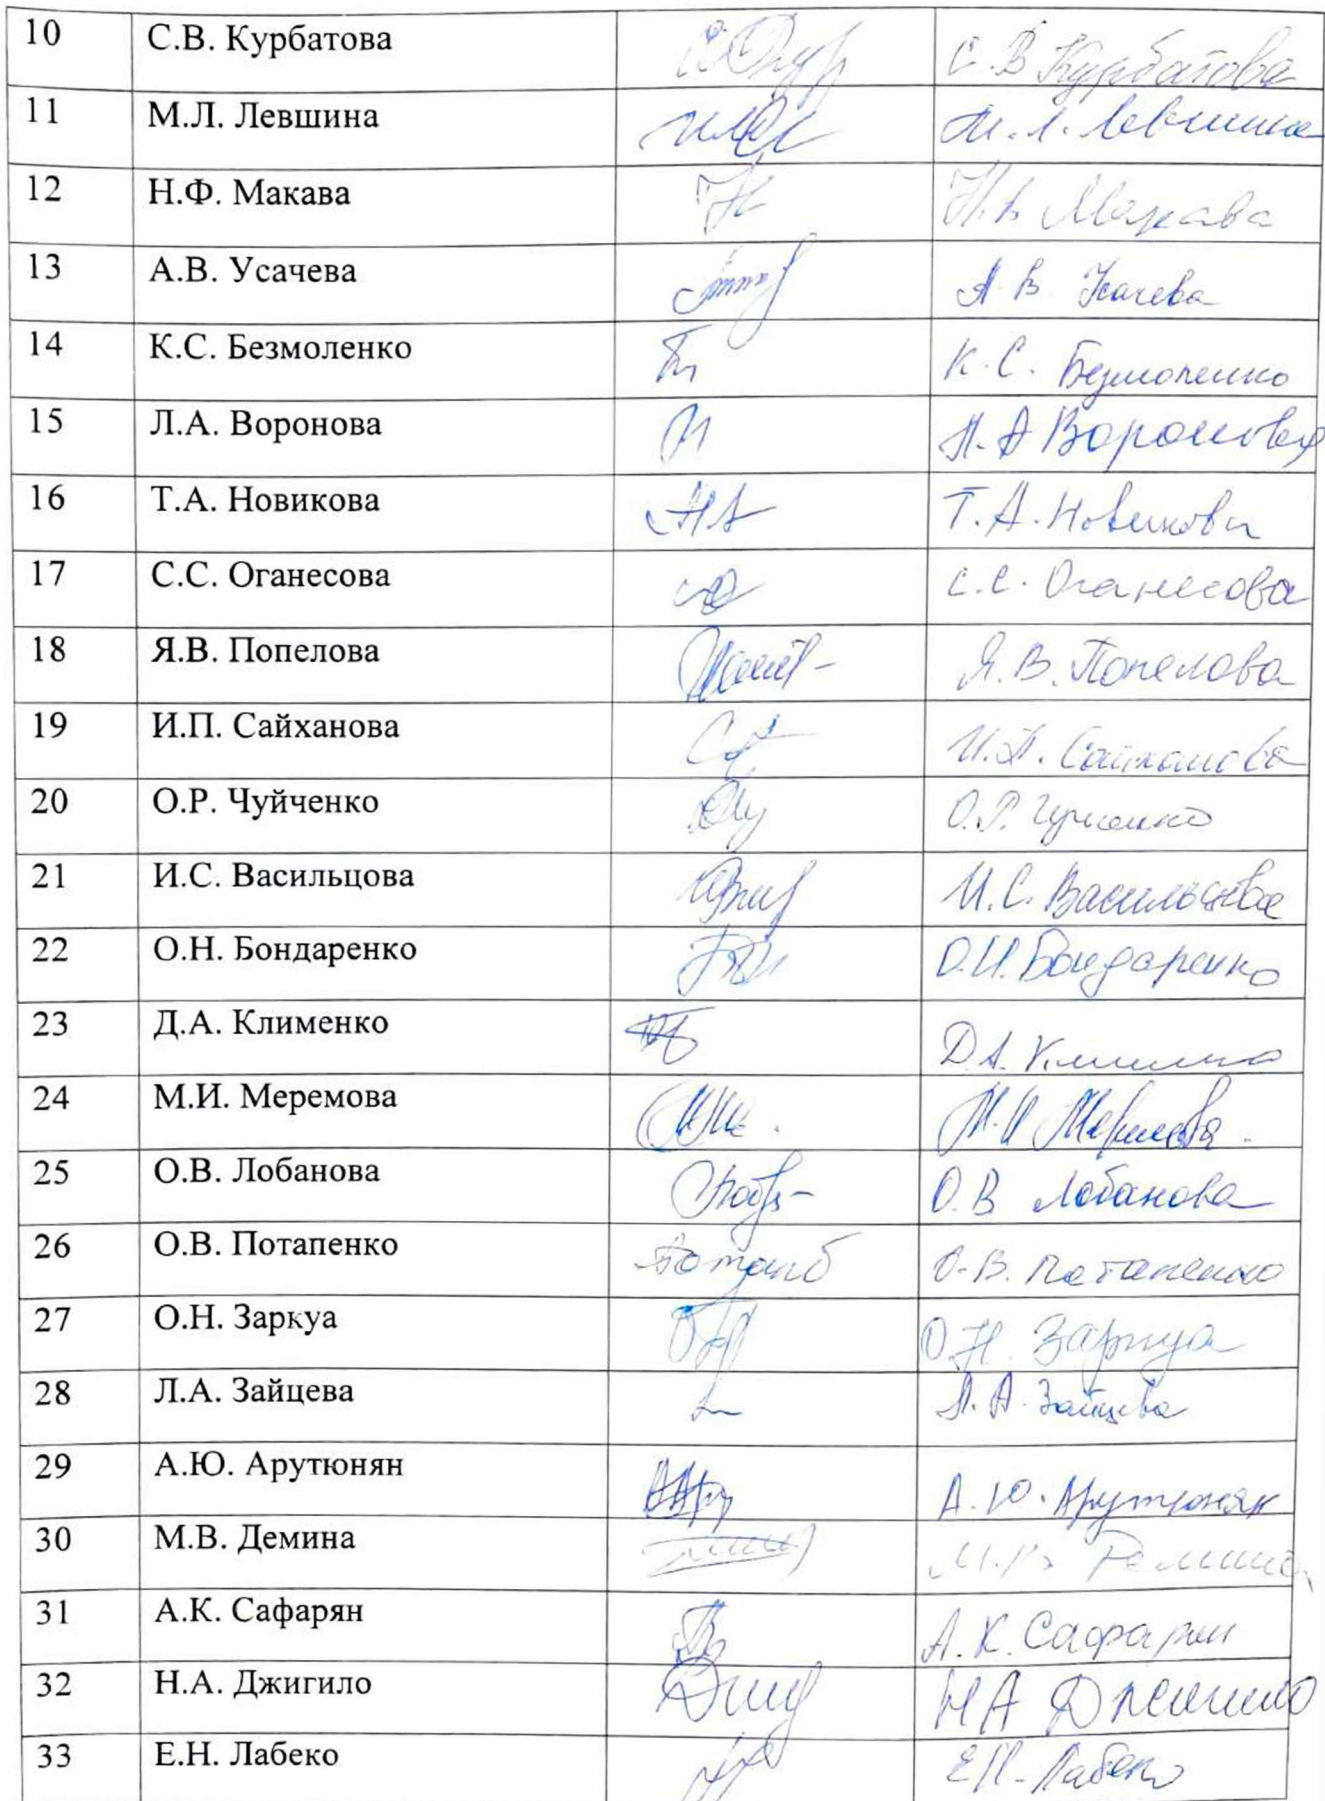 10 С.В. Курбатова С.В Курбатова
11 М.Л. Левшина М.Л. Левшина
12 Н.Ф. Макава Макава
13 А.В. Усачева А В Усачева
14 К.С. Безмоленко К.С. Безмоленко
15 Л.А. Воронова Л.А Воронова
16 Т.А. Новикова Т.А. Новикова
17 С.С. Оганесова С.С. Оганесова
18 Я.В. Попелова Я.В. Попелова
19 И.П. Сайханова И.П. Сайханова
20 О.Р. Чуйченко О.Р. Чуйченко
21 И.С. Васильцова И.С. Васильцова
22 О.Н. Бондаренко О.Н. Бондаренко
23 Д.А. Клименко Д.А. Клименко
24 М.И. Меремова М.И Меремова
25 О.В. Лобанова О.В Лобанова
26 О.В. Потапенко О.В. Потапенко
27 О.Н. Заркуа О.Н. Заркуа
28 Л.А. Зайцева Л.А. Зайцева
29 А.Ю. Арутюнян А.Ю. Арутюнян
30 М.В. Демина М.В Демина
31 А.К. Сафарян А.К. Сафарян
32 Н.А. Джигило НА Джигило
33 Е.Н. Лабеко Е.Н. Лабеко